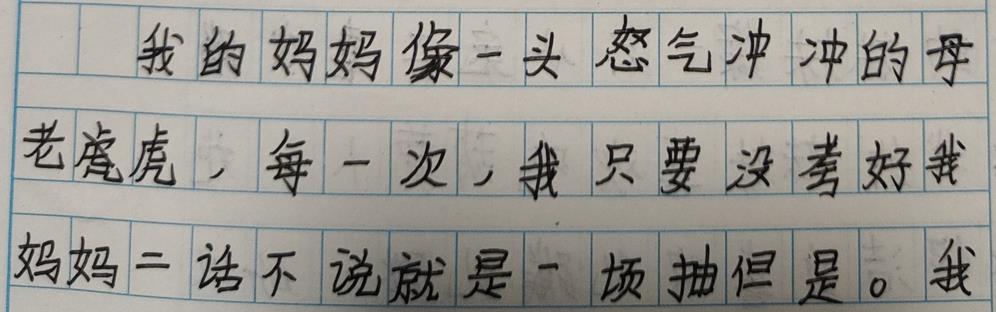 我的妈妈像一头怒气冲冲的母
老虎虎，每一次，我只要没考好我
妈妈二话不说就是一顿抽但是。我